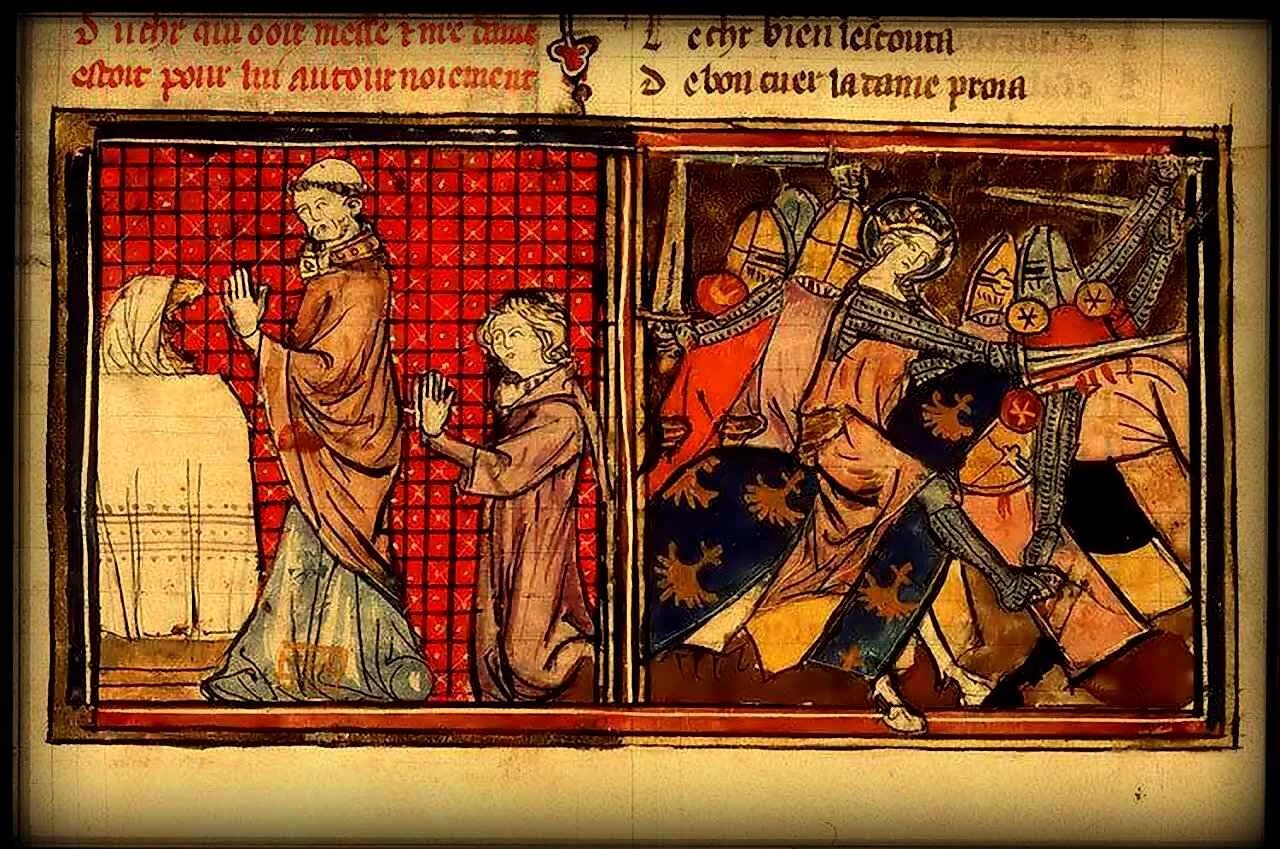 D u chr qui ooit messe ⁊ nre dame
estoit pour lui au tournoiement
L e chr bien lescouta
D e bon cuer la dame proia